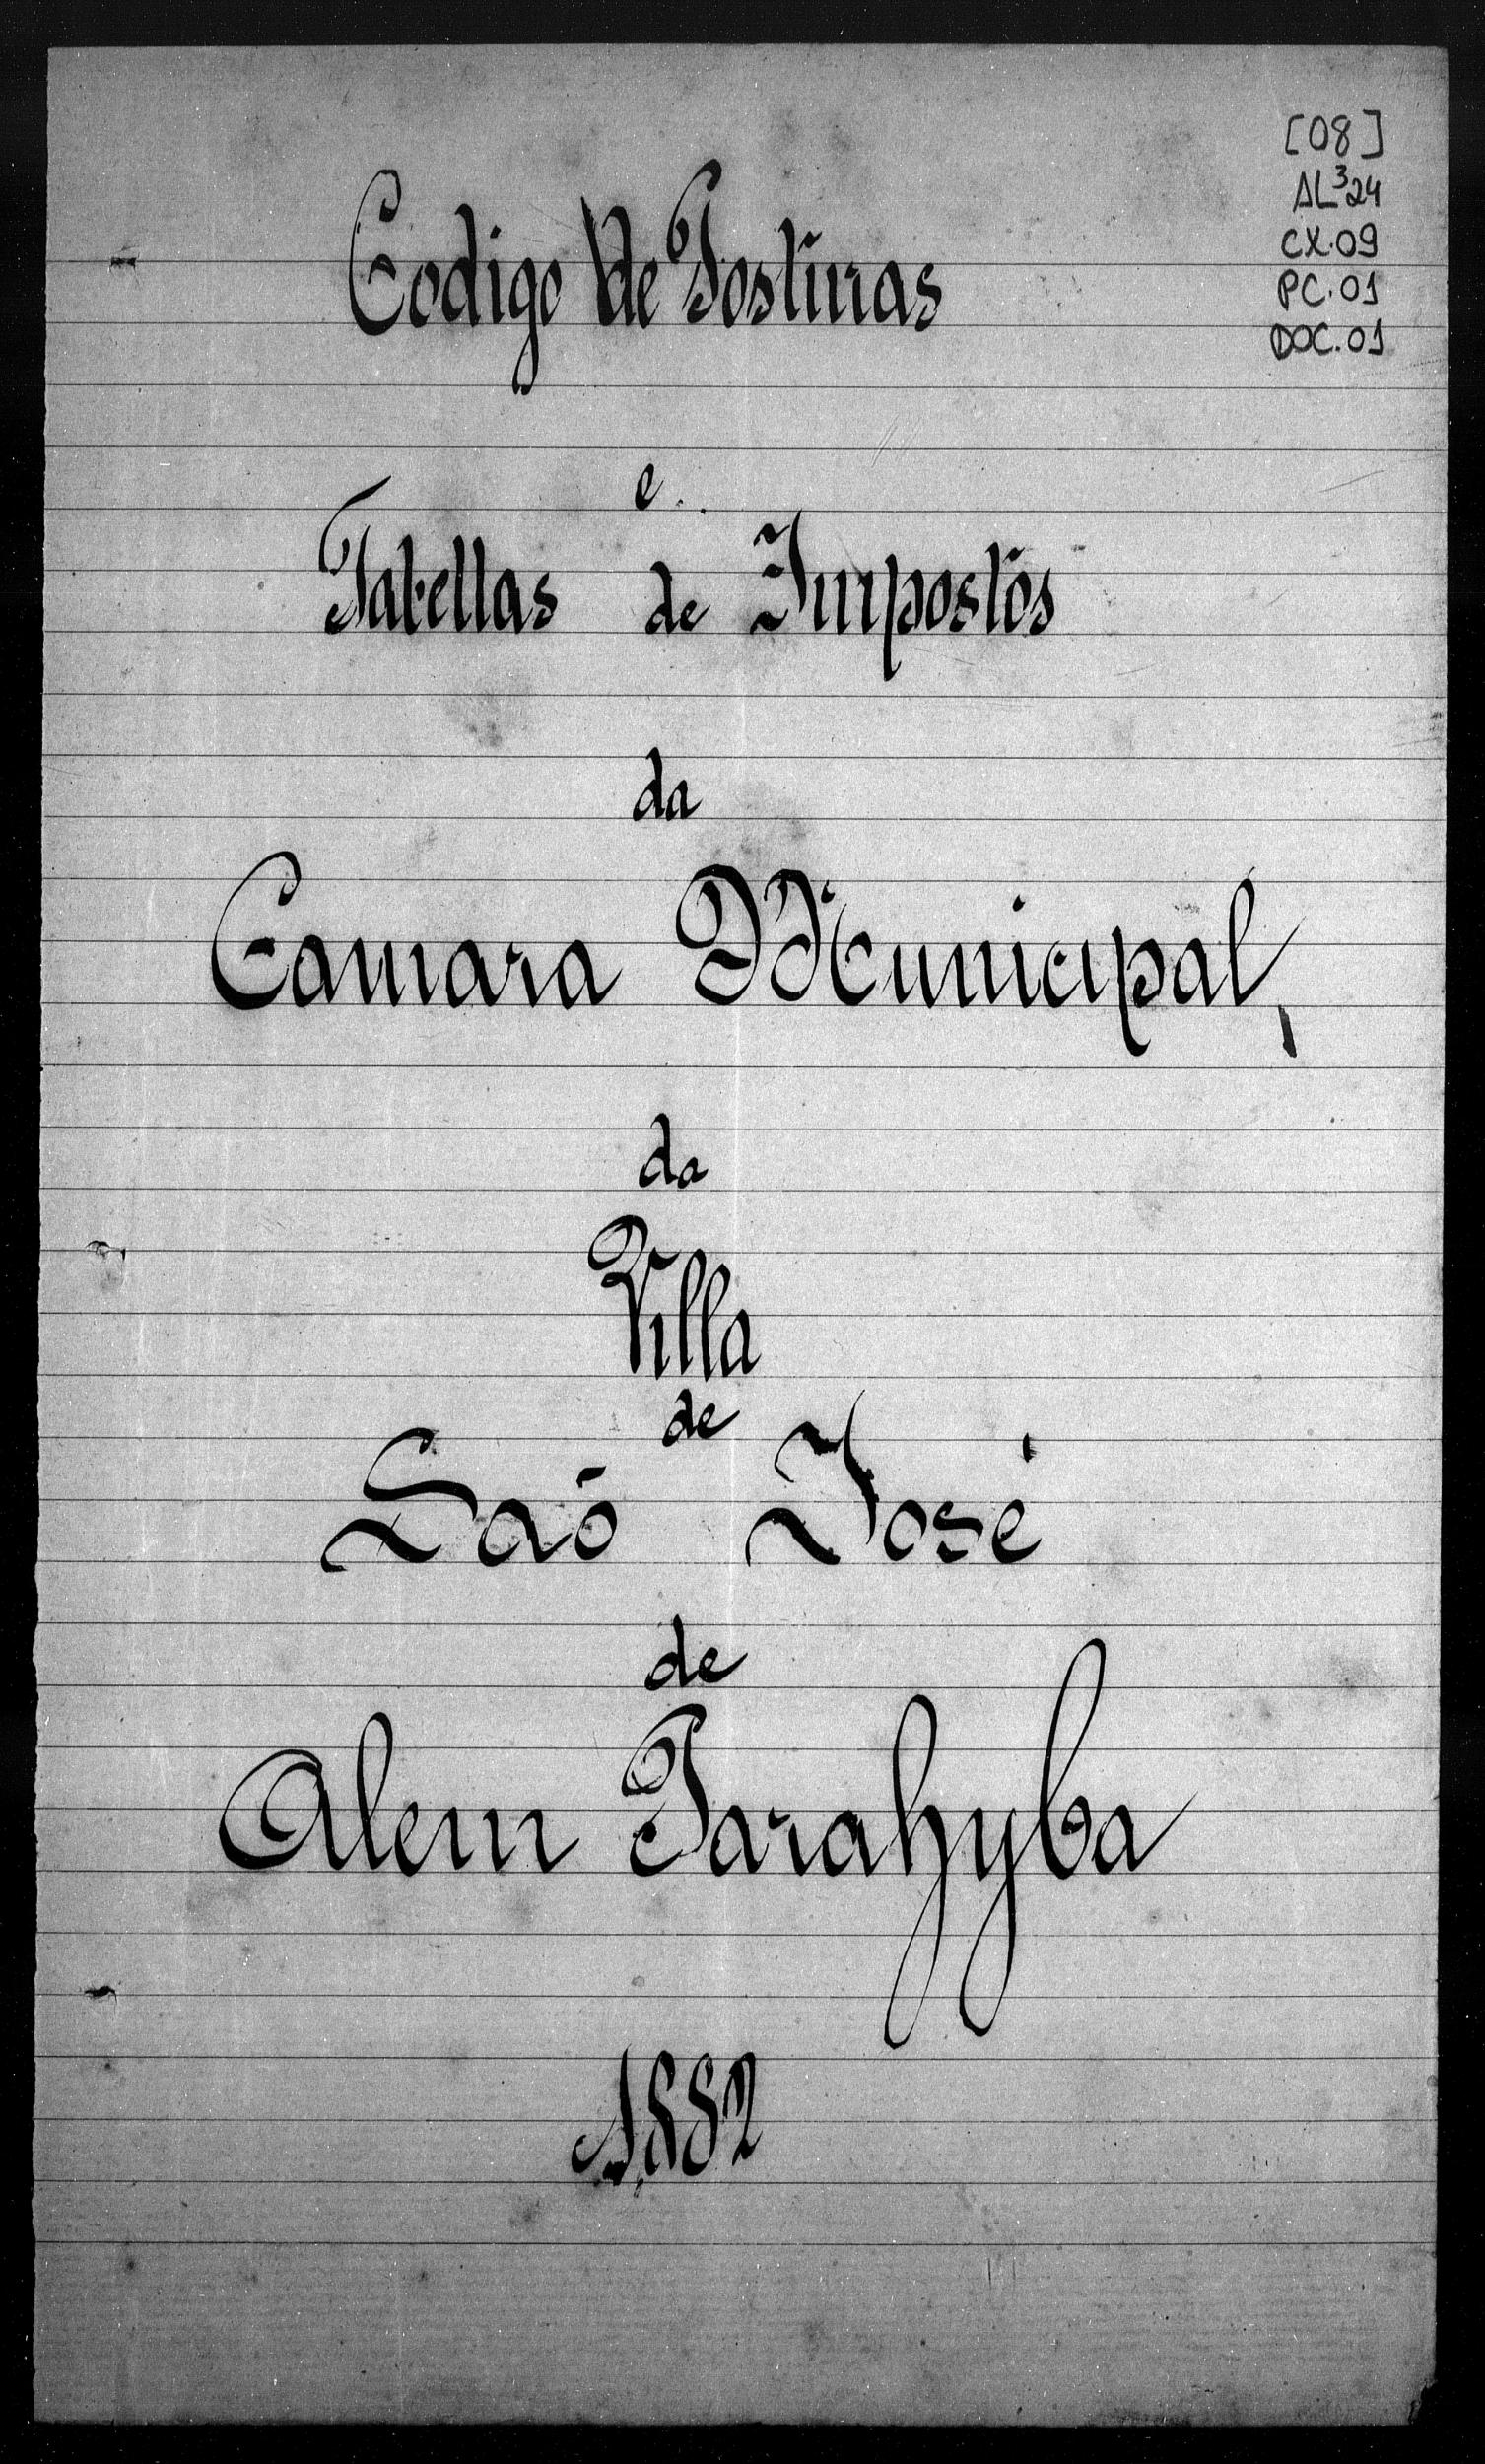 [08]
AL³24
CX.09
PC.01
DOC.01
Codigo de Posturas
e
Tabellas de Impostos
da
Camara Municipal,
da
Villa
de
Saõ José
de
Alem Parahyba
1882